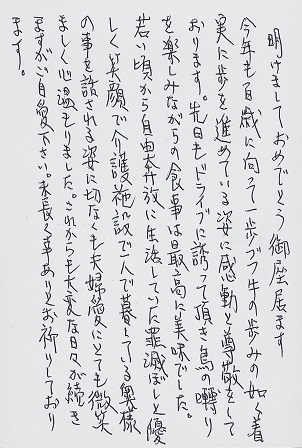 明けましておめでとう御座居ます
今年も百歳に向って一歩づつ牛の歩みの如く着
実に歩を進めている姿に感動と尊敬をして
おります。先日もドライブに誘って頂き鳥の囀り
を楽しみながらの食事は最高に美味でした。
若い頃から自由奔放に生活していた罪滅ぼしと優
しく笑顔で介護施設で一人で暮している奥様
の事を話される姿に切なくも夫婦愛にとても微笑
ましく心温もりました。これからも大変な日々が続き
ますがご自愛下さい。末長く幸ありとお祈りしており
ます。